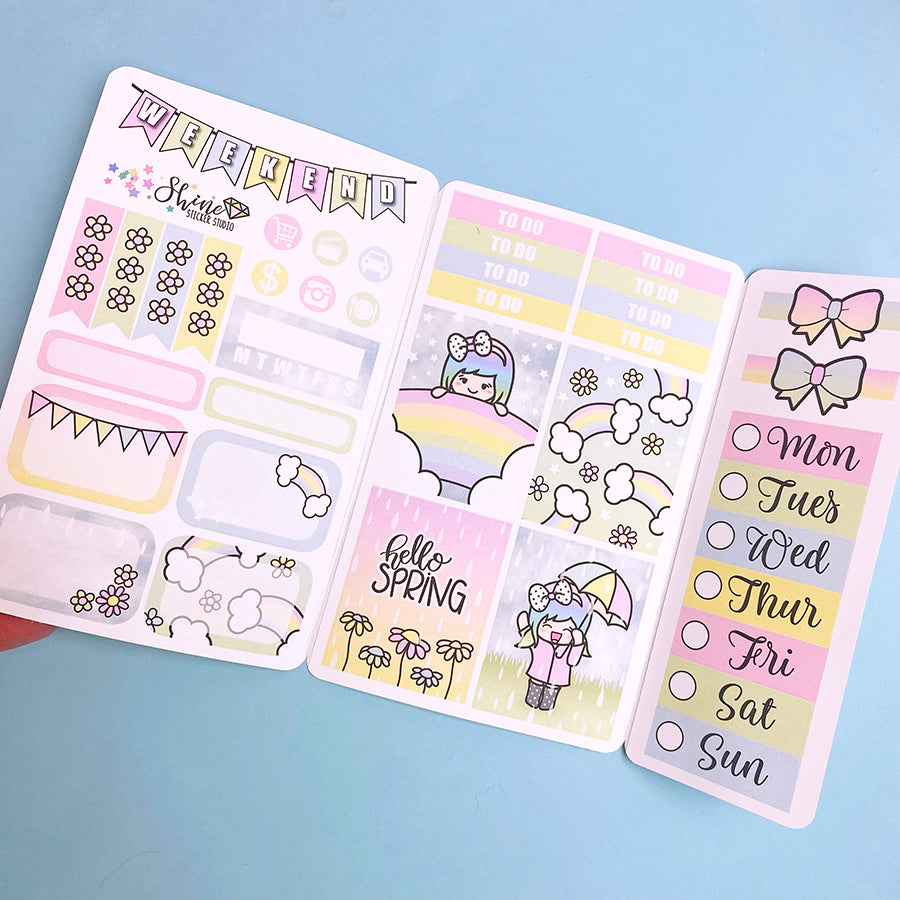 WEEKEND
Shine
STICKER STUDIO
$
M T W T F S S
TO DO
TO DO
TO DO
TO DO
TO DO
TO DO
TO DO
TO DO
hello
SPRING
Mon
Tues
Wed
Thur
Fri
Sat
Sun